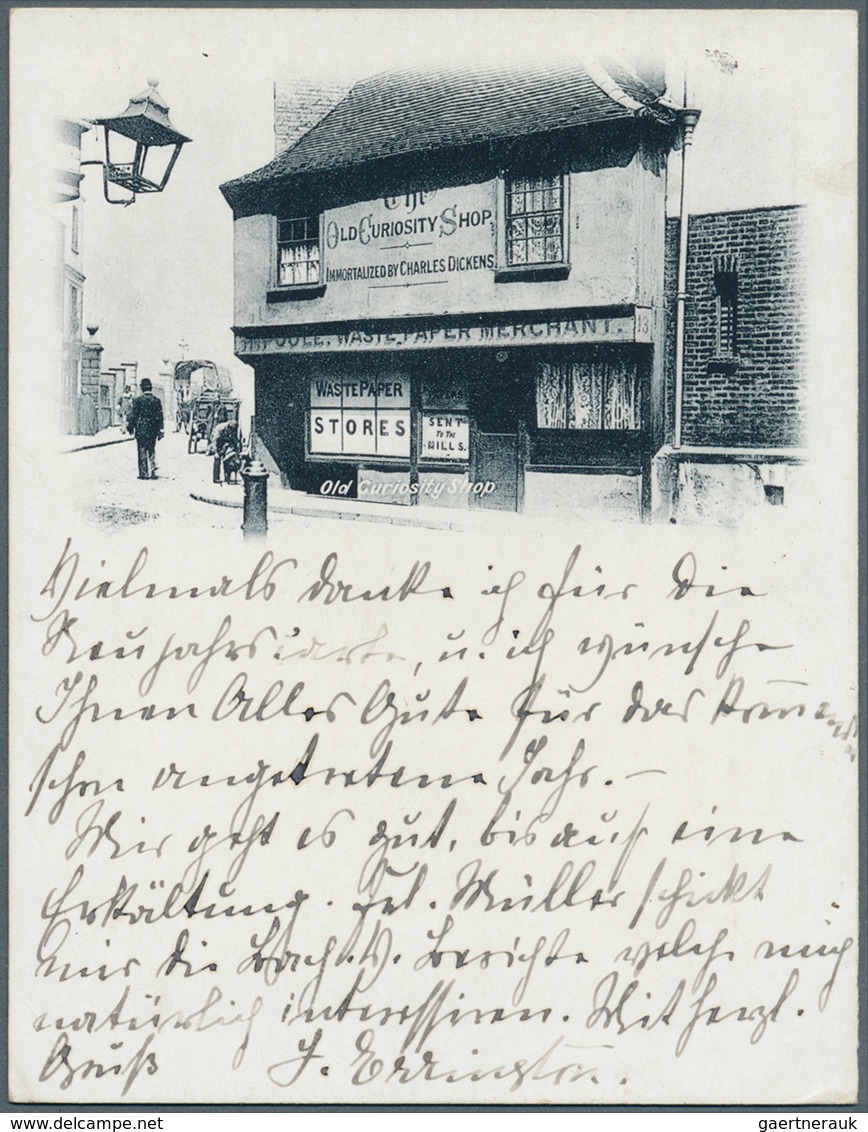 The
Old Curiosity Shop.
Immortalized by Charles Dickens.
Poole. Waste Paper Merchant. 13
Waste Paper
Stores
Sent
to the
Mills.
Old Curiosity Shop
Vielmals danke ich für die
Neujahrskarte, u. ich wünsche
Ihnen Alles Gute für das
schon angetretene Jahr. —
Mir geht es gut, bis auf eine
Erkältung. Frl. Müller schickt
mir die Bach. V. Berichte welche mich
natürlich interessiren. Mit herzl.
Gruß J. Errington.
gaertnerauk